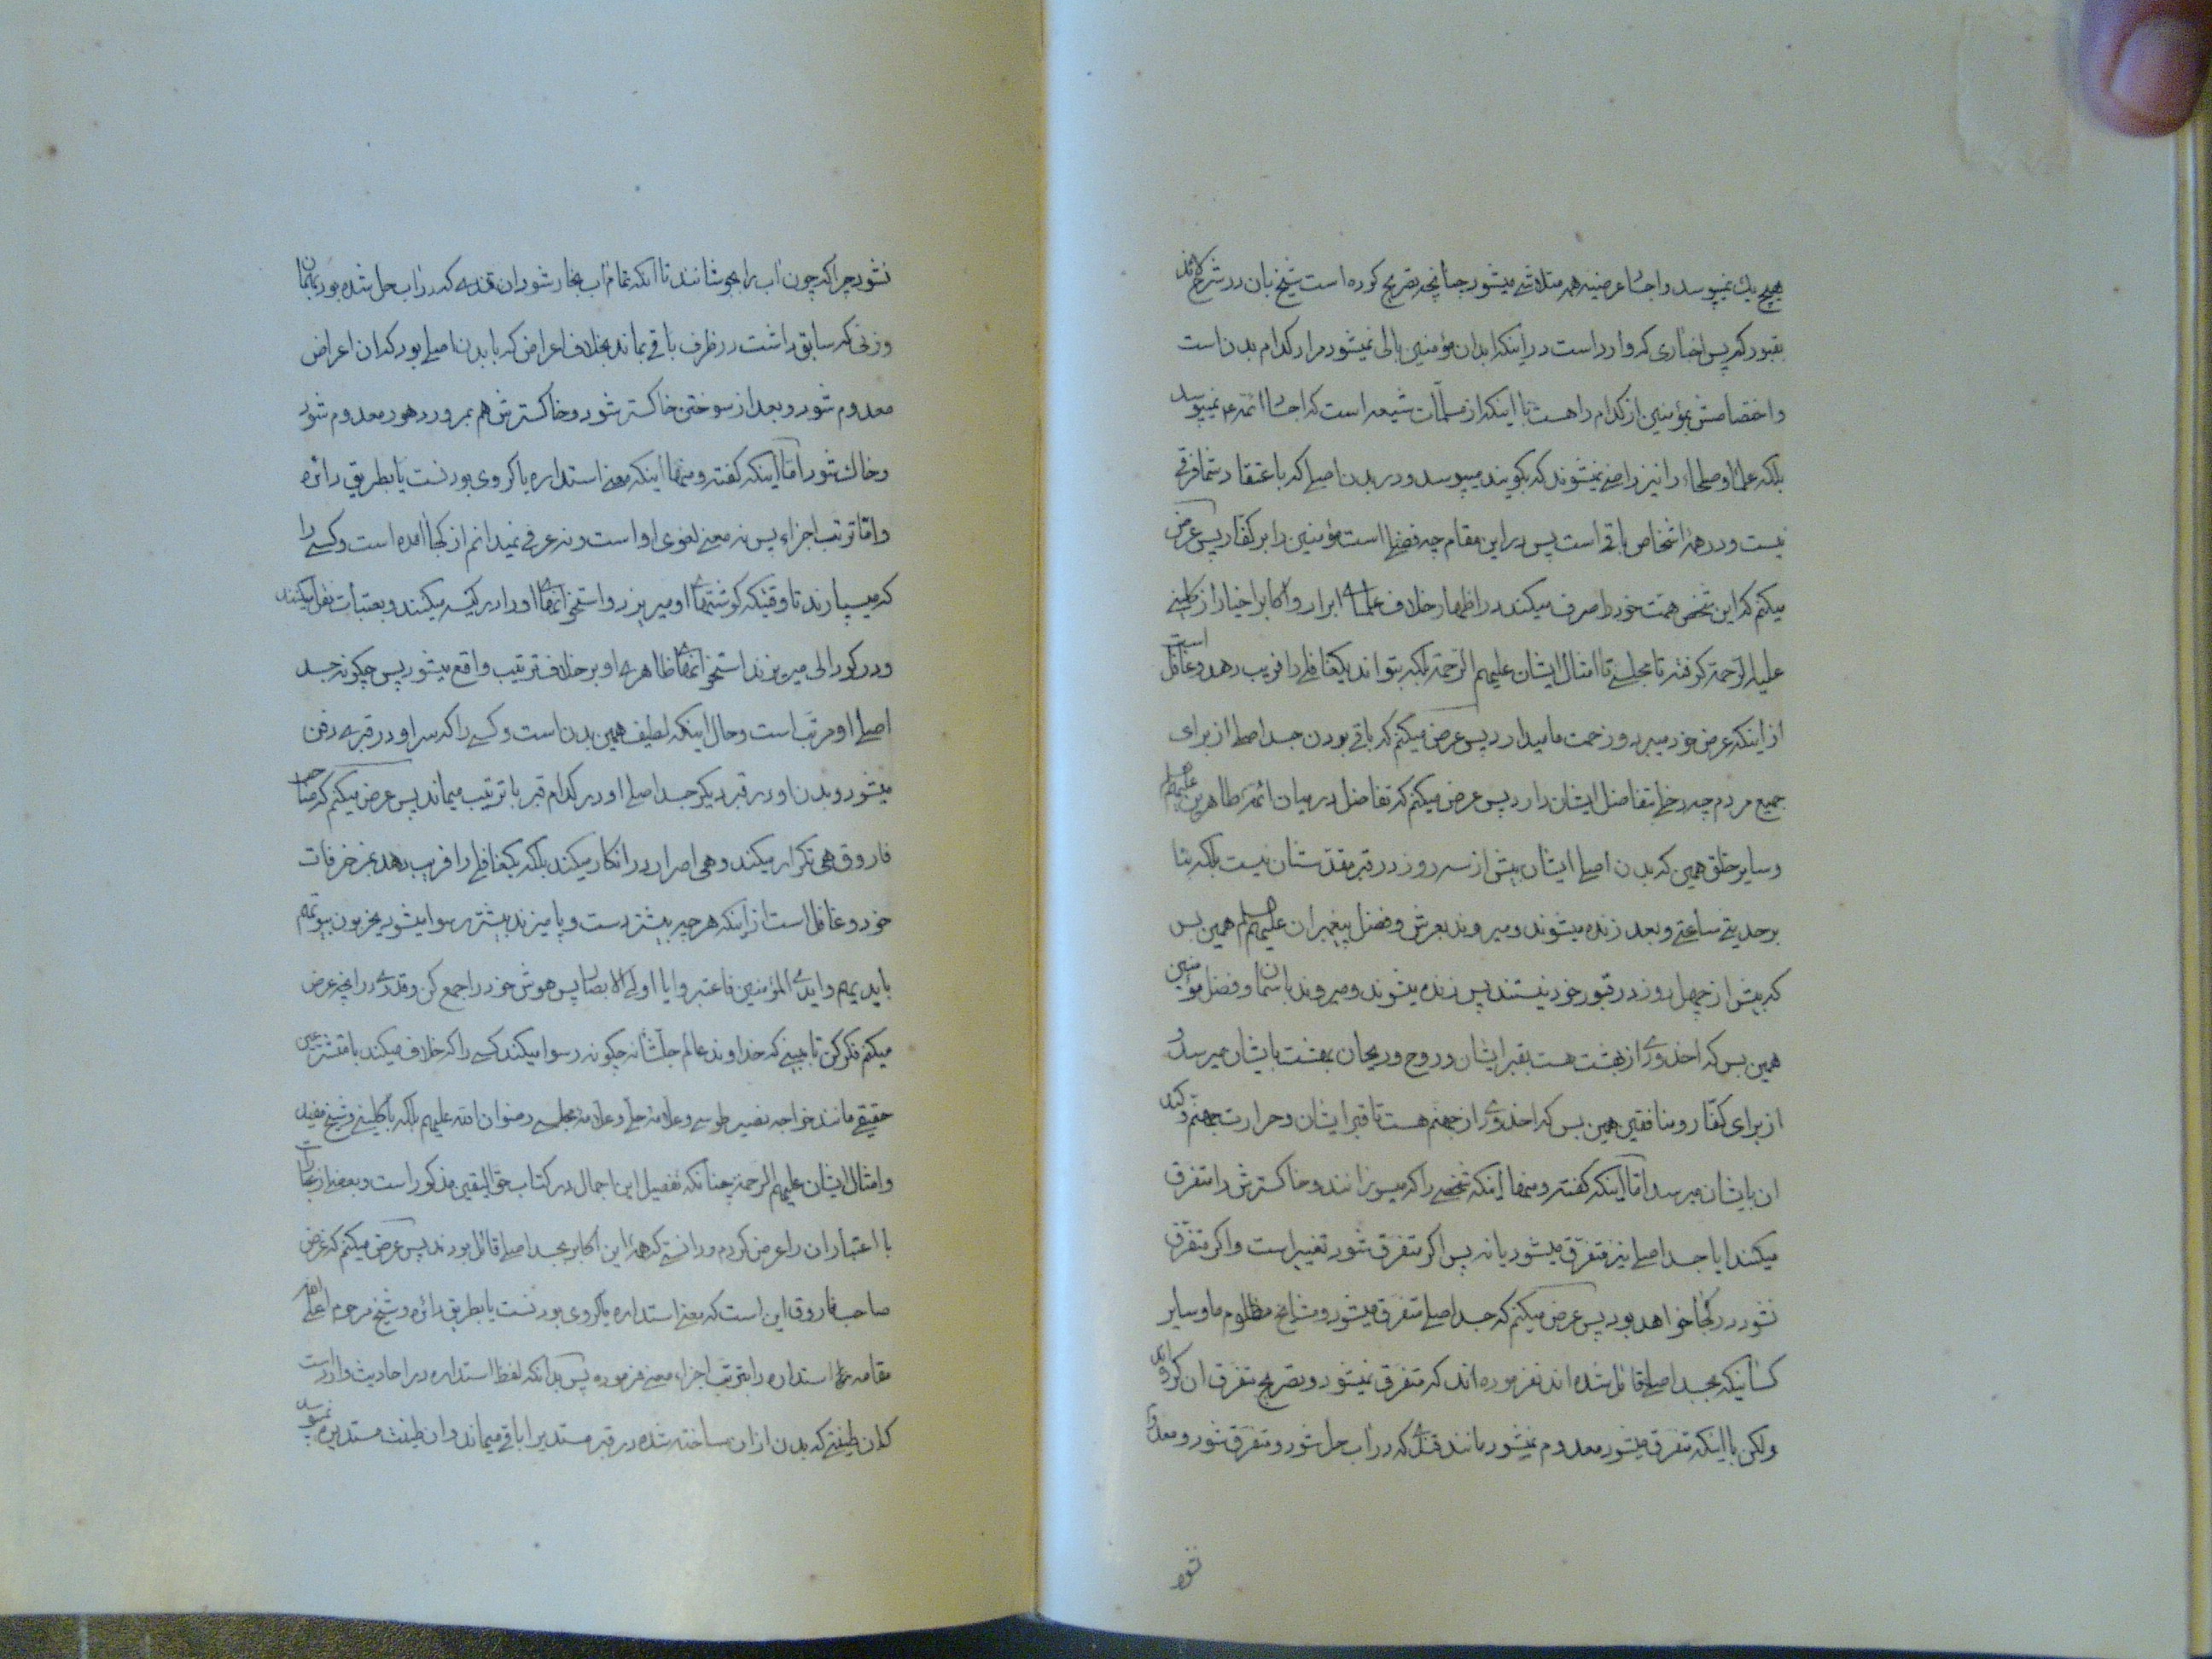 هیچ یك نمیپوسد و اجساد عرضیه همه متلاشی میشود چنانچه تصریح کوده است شیخ بان در شرح
بقبور که پس اخباری که وارد است در اینکه ابدان مؤمنین بالی نمیشود مراد کدام بدن است
و اختصاصش بمؤمنین از کدام راهست با اینکه از مسلّمات شیعه است که اجساد ائمه ع نمیپوسد
بلکه علما و صلحاء را نیز راضی نمیشوند که بکویند میپوسد و در بدن اصلی که باعتقاد شما فرقی
نیست و در همهٔ اشخاص باقی است پس در این مقام چه فضلی است مؤمنین را بر کفّار پس عرض
میکنم که این شخص همّت خود را صرف میکند در اظهار خلاف علمای ابرار و اکابر اخیار از کلینی
علیه الرّحمة کرفته تا مجلسی تا امثال ایشان علیهم الرّحمة بلکه بتواند یکغافلی را فریب دهد و غافل است
از اینکه عرض خود میبرد و زحمت ما میدارد پس عرض میکنم که باقی بودن جسد اصلی از برای
جمیع مردم چه دخلی بتفاضل ایشان دارد پس عرض میکنم که تفاضل در میان ائمهٔ طاهرین علیهم
و سایر خلق همین که بدن اصلی ایشان بیش از سه روز در قبر مقدّسشان نیست بلکه بنا
بر حدیثی ساعتی و بعد زنده میشوند و میروند بعرش و فضل پیغمبران علیهم همین بس
که بیش از چهل روز در قبور خود نیستند پس زنده میشوند و میروند باسمان و فضل مؤمنین
همین بس که اخدودی از بهشت هست بقبر ایشان و روح و ریحان بهشت بایشان میرسد و
از برای کفّار و منافقین همین بس که اخدودی از جهنم هست تا قبر ایشان و حرارت جهنّم و کند
ان بایشان میرسد امّا اینکه کفته و منها اینکه شخصی را که میسوزانند و خاکسترش را متفرق
میکنند ایا جسد اصلی نیز متفرّق میشود یا نه پس اکر متفرق شود تغییر است و اکر متفرق
نشود در کجا خواهد بود پس عرض میکنم که جسد اصلی متفرق میشود و مشایخ مظلوم ما و سایر
کسانیکه بجسد اصلی قائل شده اند نفرموده اند که متفرق نمیشود و تصریح بتفرق ان کرده اند
ولکن با اینکه متفرق میشود معدوم نمیشود مانند قندی که در اب حل شود و متفرق شود و معدوم
نشود
نشود چرا که چون اب را بجوشانند تا انکه تمام اب بخار شود ان قندی که در اب حل شده بود بهمان
وزنی که سابق داشت در ظرف باقی بماند بخلاف اعراض که با بدن اصلی بود که ان اعراض
معدوم شود و بعد از سوختن خاکستر شود و خاکسترش هم بمرور دهور معدوم شود
و خاك شود امّا اینکه کفته و منها اینکه معنی استداره یا کروی بودنست یا بطریق دائره
و امّا ترتیب اجزاء پس نه معنی لغوی او است و نه عرفی نمیدانم از کجا امده است و کسی را
که میسپارند تا وقتیکه کوشتهای او میریزد و استخوانهای او را در کیسه میکنند و بعتبات نقل میکنند
و در کودالی میریزند استخوانهای ظاهری او بر خلاف ترتیب واقع میشود پس چکونه جسد
اصلی او مرتّب است و حال اینکه لطیف همین بدن است و کسی را که سر او در قبری دفن
میشود و بدن او در قبر دیکر جسد اصلی او در کدام قبر با ترتیب میماند پس عرض میکنم که صاحب
فاروق هی تکرار میکند و هی اصرار در انکار میکند بلکه یکغافلی را فریب بدهد بمزخرفات
خود و غافل است از اینکه هر چه بیشتر دست و پا میزند بیشتر رسوا میشود یخربون بیوتهم
بایدیهم و ایدی المؤمنین فاعتبروا یا اولی الابصار پس هوش خود را جمع کن و قدری در انچه عرض
میکنم فکر کن تا ببینی که خداوند عالم جلّ شأنه چکونه رسوا میکند کسی را که خلاف میکند با متشرعین
حقیقی مانند خواجه نصیر طوسی و علامهٔ حلّی و علّامهٔ مجلسی رضوان الله علیهم بلکه با کلینی و شیخ مفید
و امثال ایشان علیهم الرّحمة چنانکه تفصیل این اجمال در کتاب حق الیقین مذکور است و بعضی از عبارات
با اعتبار ان را عرض کردم و دانستی که همهٔ این اکابر بجسد اصلی قائل بودند پس عرض میکنم که غرض
صاحب فاروق این است که معنی استداره یا کروی بودنست یا بطریق دائره و شیخ مرحوم اعلی الله
مقامه استداره را بترتیب اجزاء معنی فرموده پس بدانکه لفظ استداره در احادیث وارد است
که ان طینتی که بدن از ان ساخته شده در قبر مستدیرا باقی میماند و ان طینت مستدیره نمیپوسد